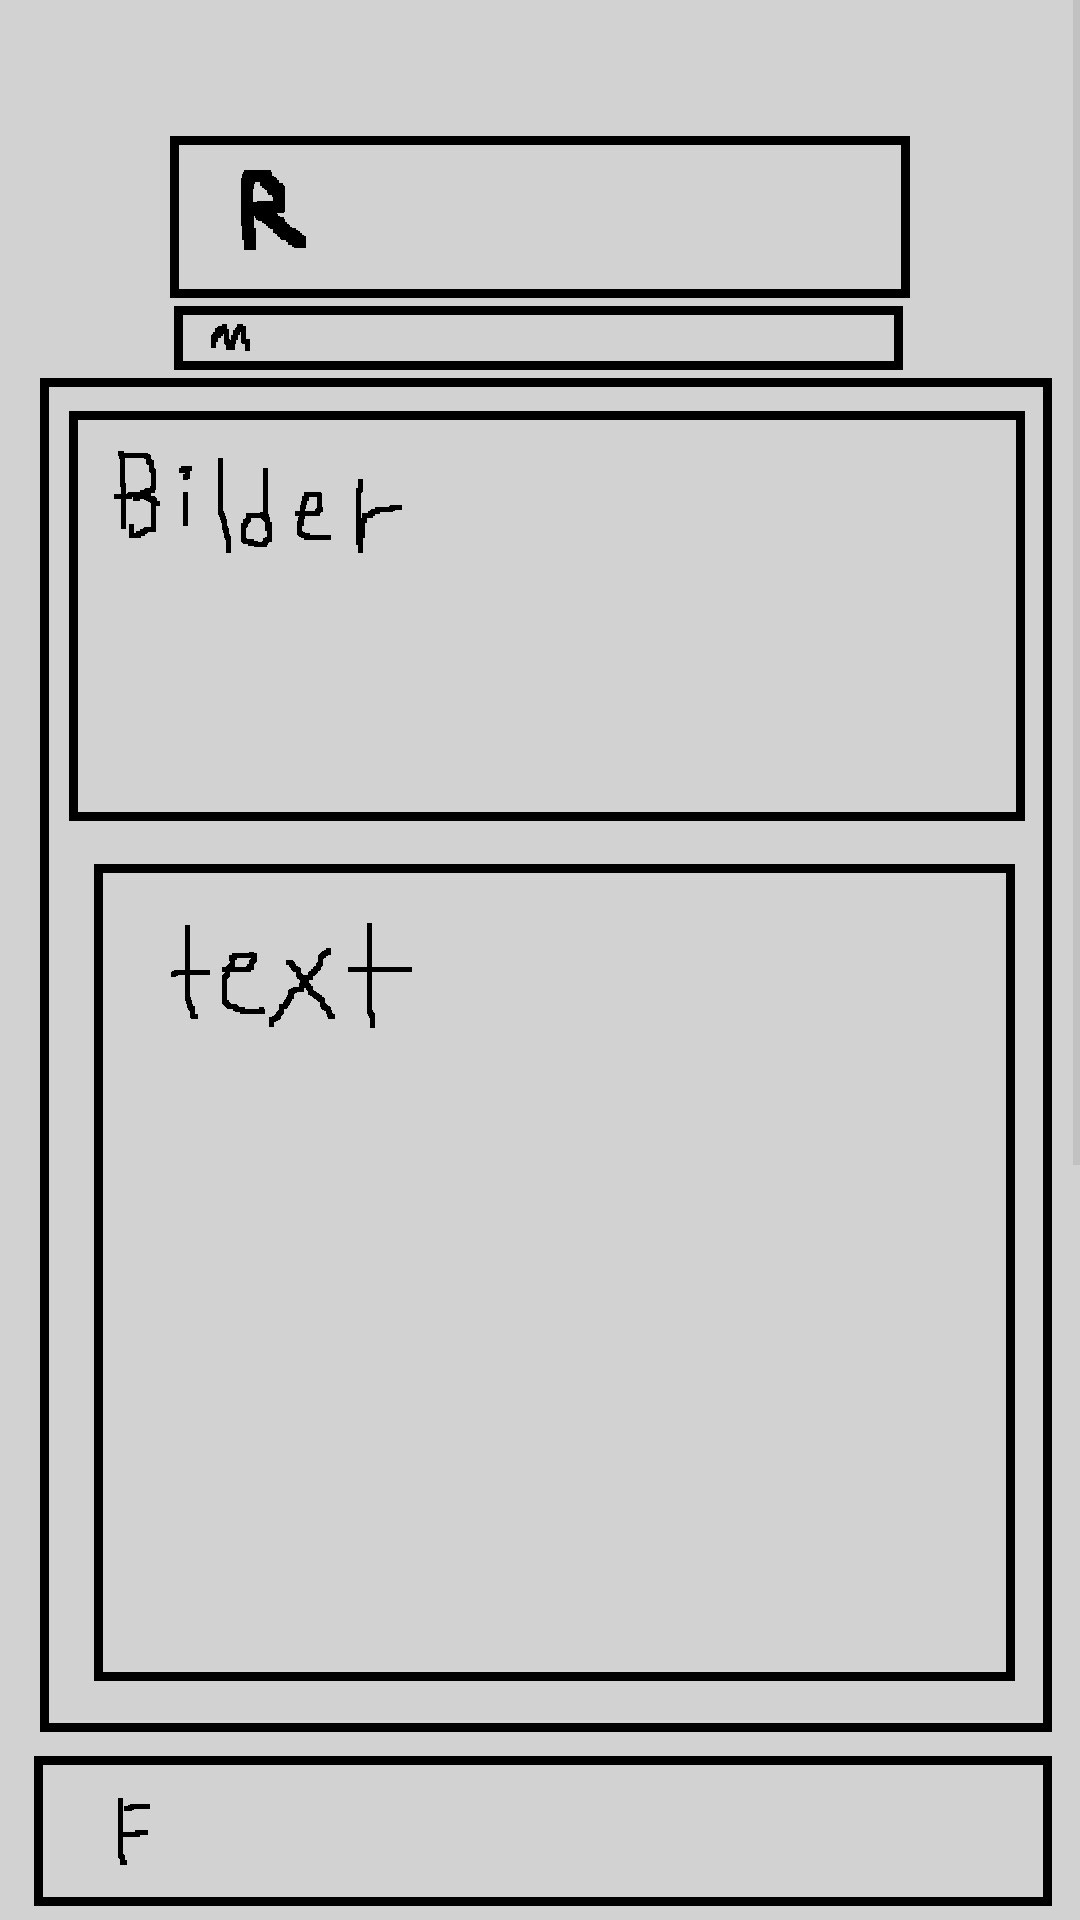 R
m
Bilder
text
F